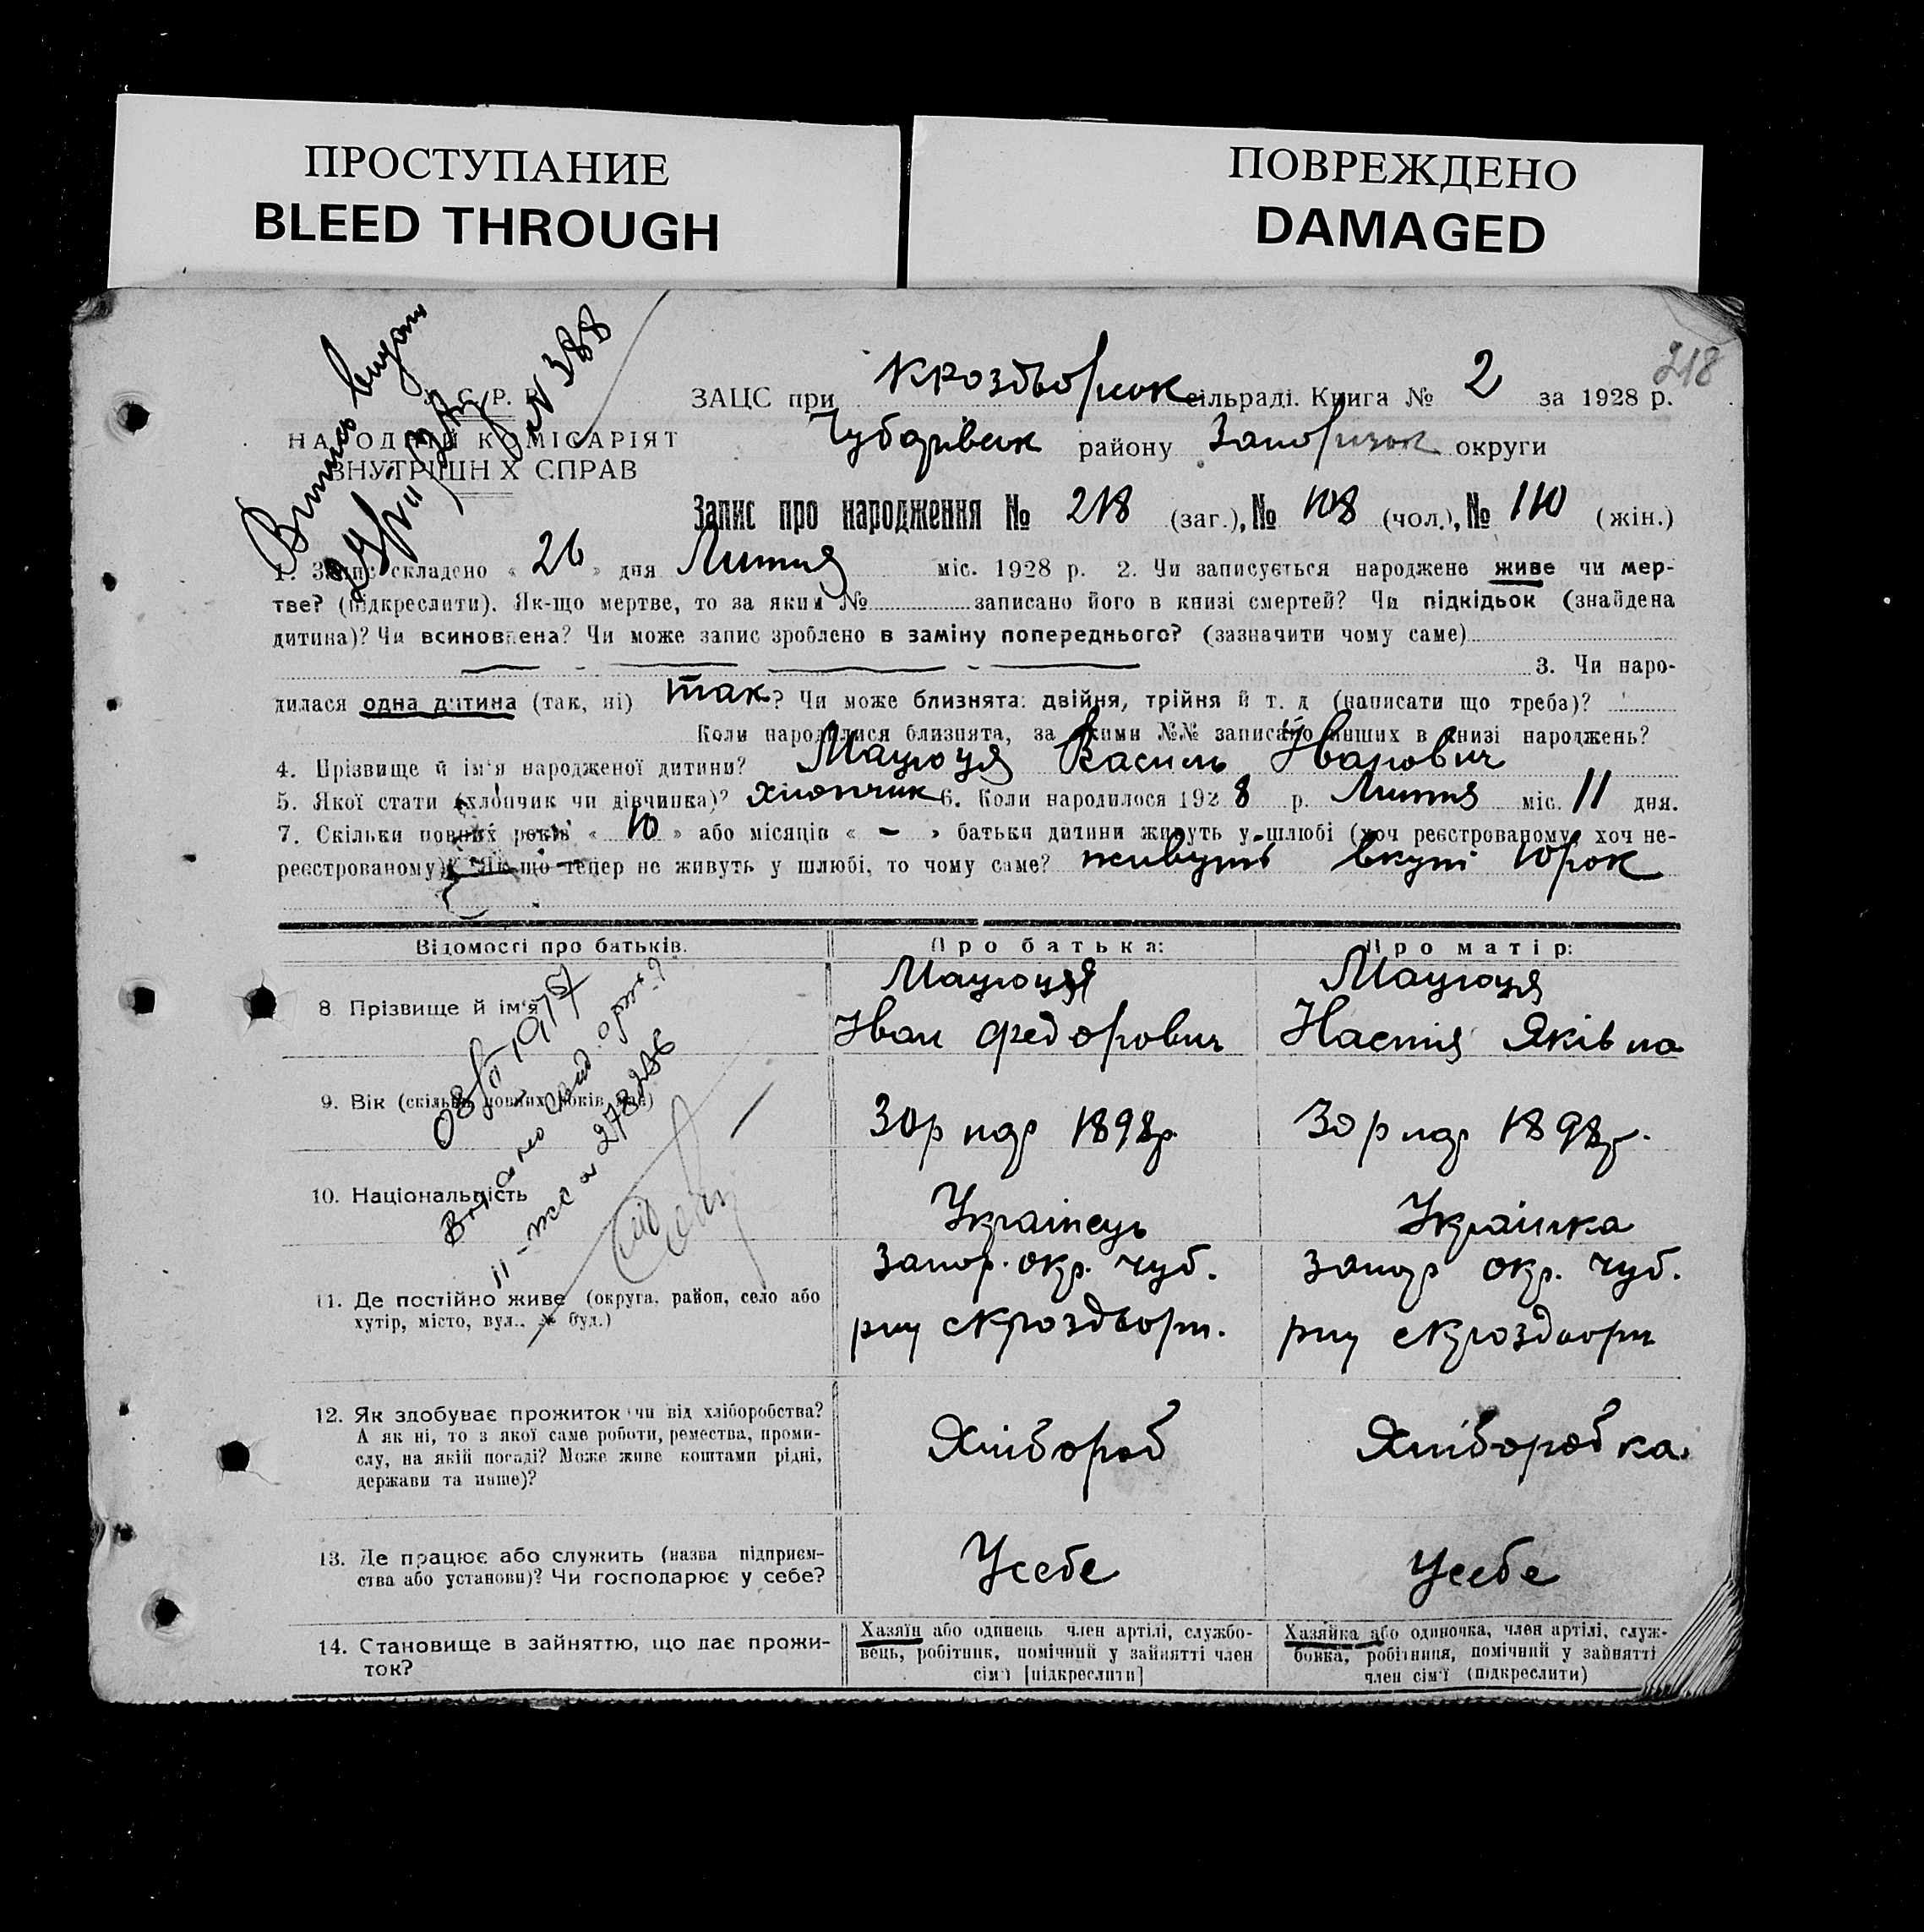 ПРОСТУПАНИЕ
BLEED THROUGH
ПОВРЕЖДЕНО
DAMAGED
218
Витяг видан
№ 388
НАРОДНІЙ КОМІСАРІЯТ
ВНУТРІШНІХ СПРАВ
ЗАЦС при Кроздворськ сільраді. Книга № 2 за 1928 р.
Чубарівськ району Запорізьк округи
Запис про народження № 218 (заг.), № 108 (чол.), № 110 (жін.)
1. Запис складено « 26 » дня Липня міс. 1928 р. 2. Чи записується народжене живе чи мер-
тве? (підкреслити). Як-що мертве, то за яким № записано його в книзі смертей? Чи підкідьок (знайдена
дитина)? Чи всиновлена? Чи може запис зроблено в заміну попереднього? (зазначити чому саме)
3. Чи наро-
дилася одна дитина (так, ні) так? Чи може близнята: двійня, трійня й т. д (написати що треба)?
Коли народилися близнята, за якими №№ записано инших в книзі народжень?
4. Прізвище й ім'я народженої дитини? Мацюця Василь Іванович
5. Якої стати (хлопчик чи дівчинка)? Хлопчик 6. Коли народилося 1928 р. Липня міс. 11 дня.
7. Скільки повних років « 10 » або місяців « - » батьки дитини живуть у шлюбі (хоч реєстрованому, хоч не-
реєстрованому)? Як-що тепер не живуть у шлюбі, то чому саме? живуть вкупі 10 рок
Відомості про батьків.
Про батька:
Про матір:
8. Прізвище й ім'я
Мацюця
Іван Федорович
Мацюця
Настя Яківна
9. Вік (скільки повних років має)
30 р нар 1898р.
30 р нар 1898р.
10. Національність
Українець
Українка
11. Де постійно живе (округа, район, село або
хутір, місто, вул., № буд.)
Запор. окр. Чуб.
рну с Кроздвори.
Запор окр. Чуб.
рну с Кроздвори
12. Як здобуває прожиток (чи від хліборобства?
А як ні, то з якої саме роботи, ремества, проми-
слу, на якій посаді? Може живе коштами рідні,
держави та инше)?
Хлібороб
Хліборобка
13. Де працює або служить (назва підприєм-
ства або установи)? Чи господарює у себе?
Усебе
Усебе
14. Становище в зайняттю, що дає прожи-
ток?
Хазяїн або одинець, член артілі, службо-
вець, робітник, помічний у зайнятті член
сім'ї [підкреслити]
Хазяйка або одиночка, член артілі, служ-
бовка, робітниця, помічний у зайнятті
член сім'ї (підкреслити)